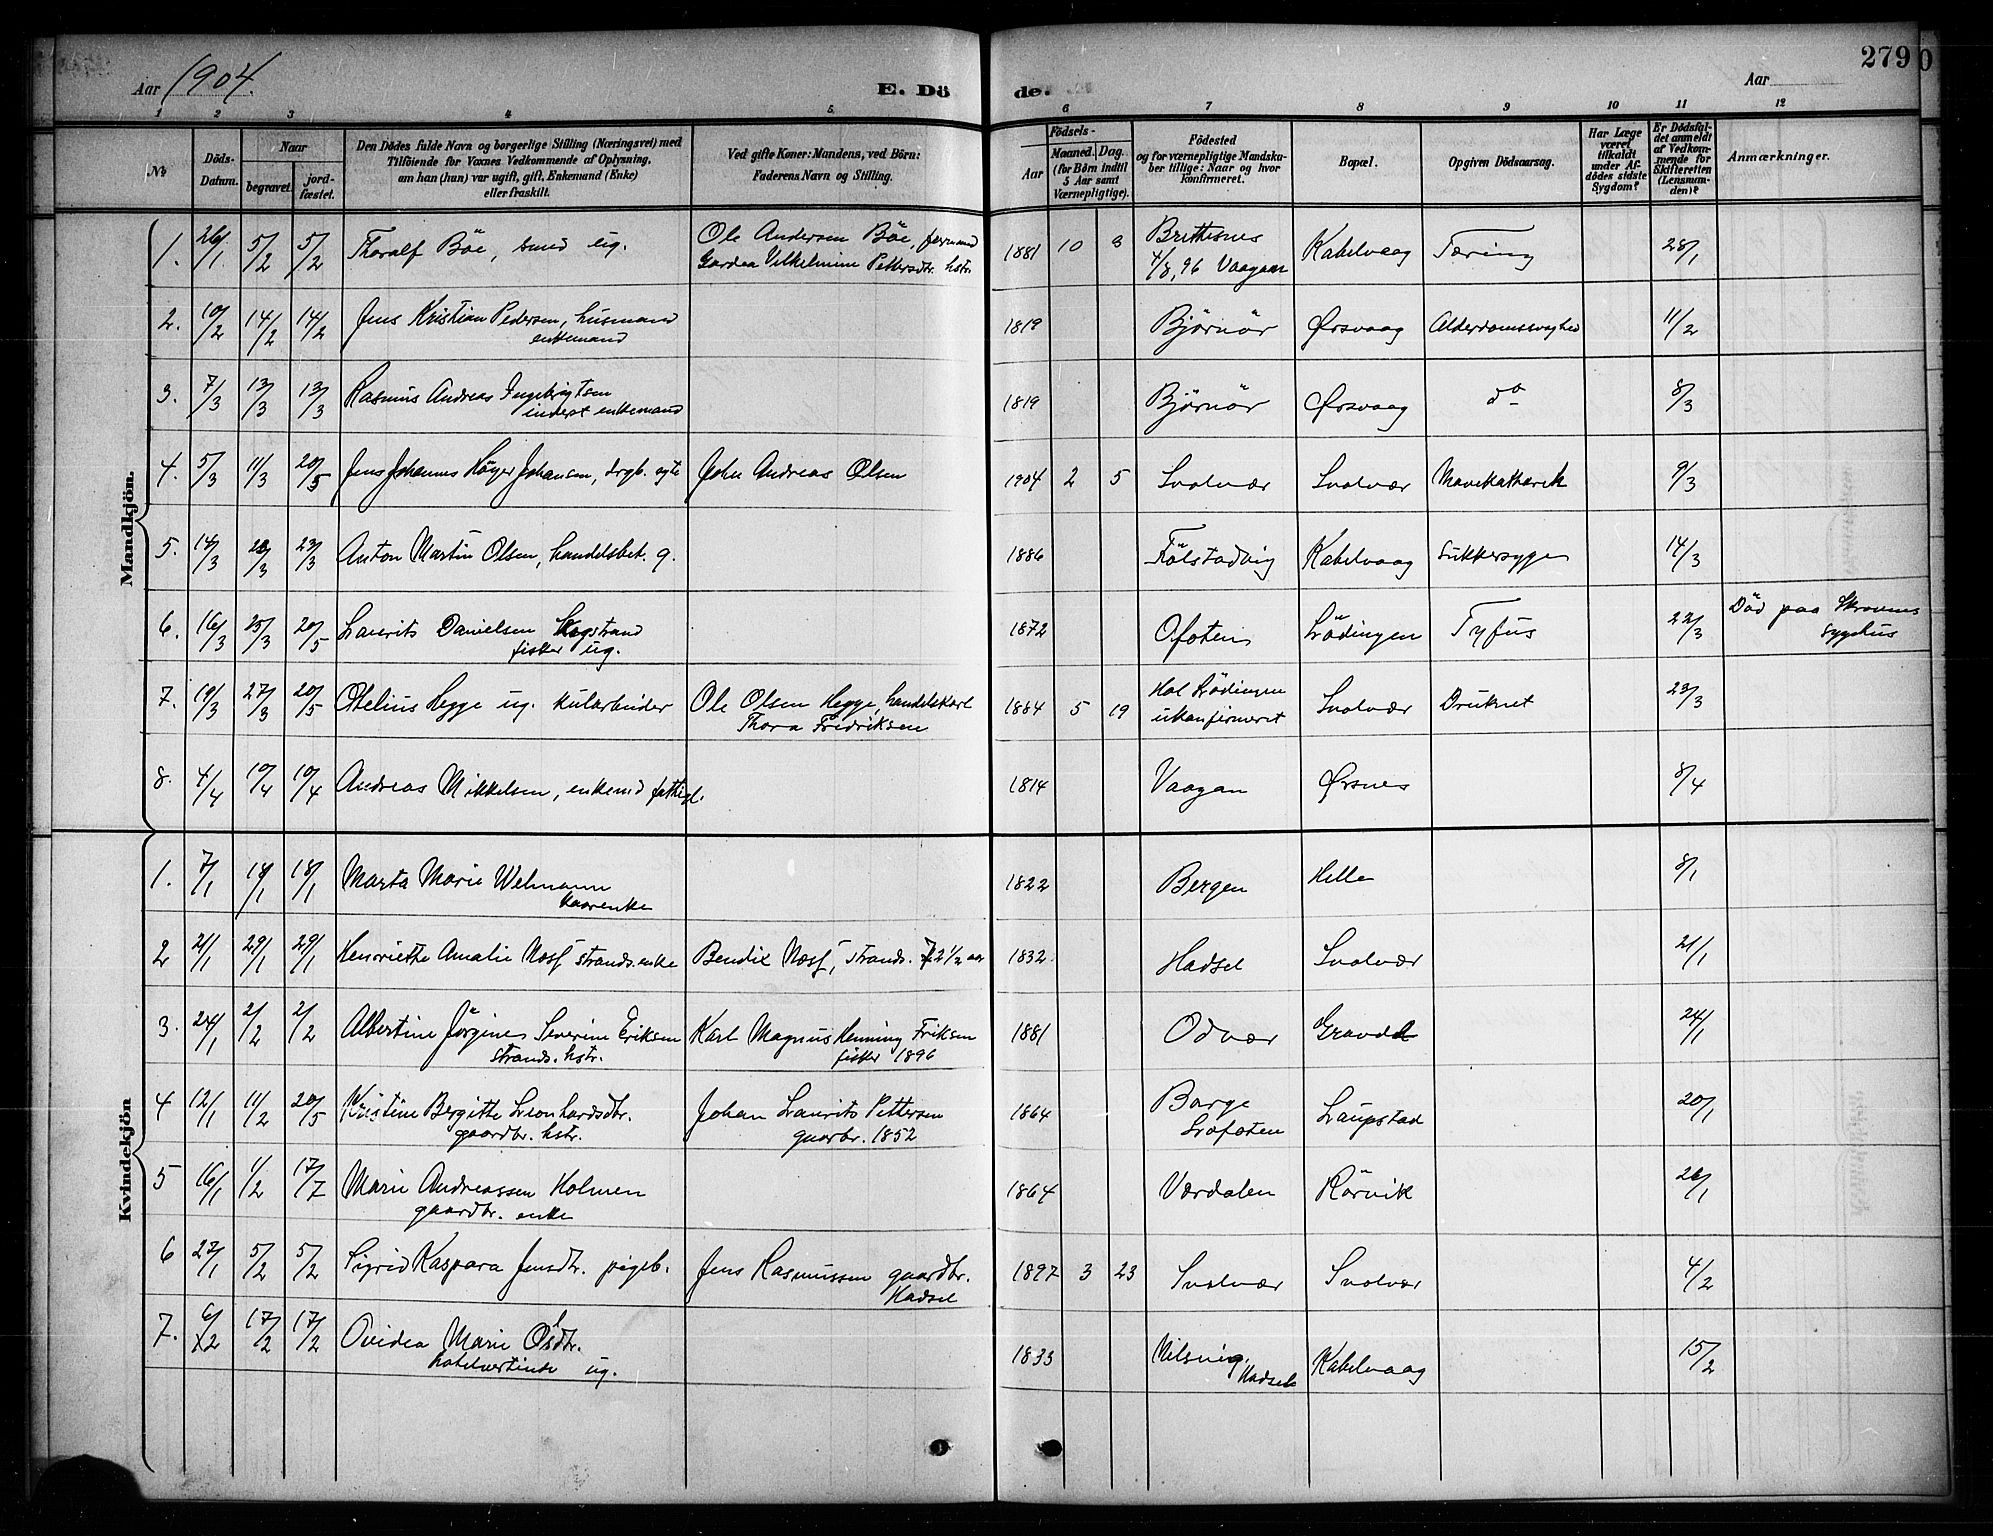 279
Aar 1904. E. Dö de. Aar
1 2 3 4 5. 6 7 8 9 10 11 12
№ Döds-Datum. Naar begravet. jord-fæstet. Den Dödes fulde Navn og borgerlige Stilling (Næringsvei) med Tilföiende for Voxnes Vedkommende af Oplysning, om han (hun) var ugift, gift, Enkemand (Enke) eller fraskilt. Ved gifte Koner: Mandens, ved Börn: Faderens Navn og Stilling. Födsels- Aar Maaned. Dag. (for Börn indtil 5 Aar samt Værnepligtige). Födested og for værnepligtige Mandskaber tillige: Naar og hvor konfirmeret. Bopæl. Opgiven Dödsaarsag. Har Læge været tilkaldt under Afdödes sidste Sygdom? Er Dödsfaldet anmeldt af Vedkommende for Skifteretten (Lensmanden)? Anmærkninger.
Mandkjön.
1. 26/1 5/2 5/2 Thoralf Böe, smed ug. Ole Andersen Böe, formand 1881 10 8 Brettesnes Kabelvaag Tæring 28/1
Gardea Vilhelmine Pettersdtr. hstr. 4/8, 96 Vaagan
2. 10/2 14/2 14/2 Jens Kristian Pedersen, husmand 1819 Björnör Ørsvaag Alderdomssvaghed 11/2
enkemand
3. 7/3 13/3 13/3 Rasmus Andreas Ingebrigtsen 1819 Björnör Ørsvaag do 8/3
inderst enkemand
4. 5/3 11/3 20/5 Jens Johannes Höyer Johansen, drgb. ægte John Andreas Olsen 1904 2 5 Svolvær Svolvær Mavekatharrh 9/3
5. 14/3 23/3 23/3 Anton Martin Olsen, handelsbet. g. 1886 Fölstadvig Kabelvaag Sukkersyge 14/3
6. 16/3 25/3 20/5 Laurits Danielsen 1872 Ofoten Lödingen Tyfus 22/3 Död paa Skrovens
fisker ug. Sygehus
7. 19/3 27/3 20/5 Otelius Hegge ug. kularbeider Ole Olsen Hegge, handelskarl 1884 5 19 Hol Lödingen Svolvær Druknet 23/3
Thora Fredriksen ukonfirmeret
8. 4/4 10/4 10/4 Andreas Mikkelsen, enkemd fattigl. 1814 Vaagan Ørsnes 8/4
Kvindekjön
1. 7/1 18/1 18/1 Marta Marie Welmann 1822 Bergen Helle 8/1
kaarenke
2 21/1 29/1 29/1 Henriette Amalie Næss strands. enke Bendix Næss, strands. 72 1/2 aar 1832. Hadsel Svolvær 21/1
3. 24/1 2/2 2/2 Albertine Jörgine Severine Eriksen Karl Magnus Henning Eriksen 1881 Odvær Gravdal 24/1
strands. hstr. fisker 1896
4 12/1 11/2 20/5 Kristine Bergitte Leonhardsdtr. Johan Laurits Pettersen 1864 Borge Laupstad 20/1
gaardbr. hstr. gaarbr. 1852 Lofoten
5 16/1 1/2 17/7 Marie Andreassen Holmen 1864 Værdalen Rörvik 26/1
gaardbr. enke
6 27/1 5/2 5/2 Sigrid Kaspara Jensdtr. pigeb. Jens Rasmussen gaardbr. 1897 3 23 Svolvær Svolvær 4/2
Hadsel
7. 6/2 17/2 17/2 Ovidea Marie Olsdtr. 1833 Hadsel Kabelvaag 15/2
hotelvertinde ug.